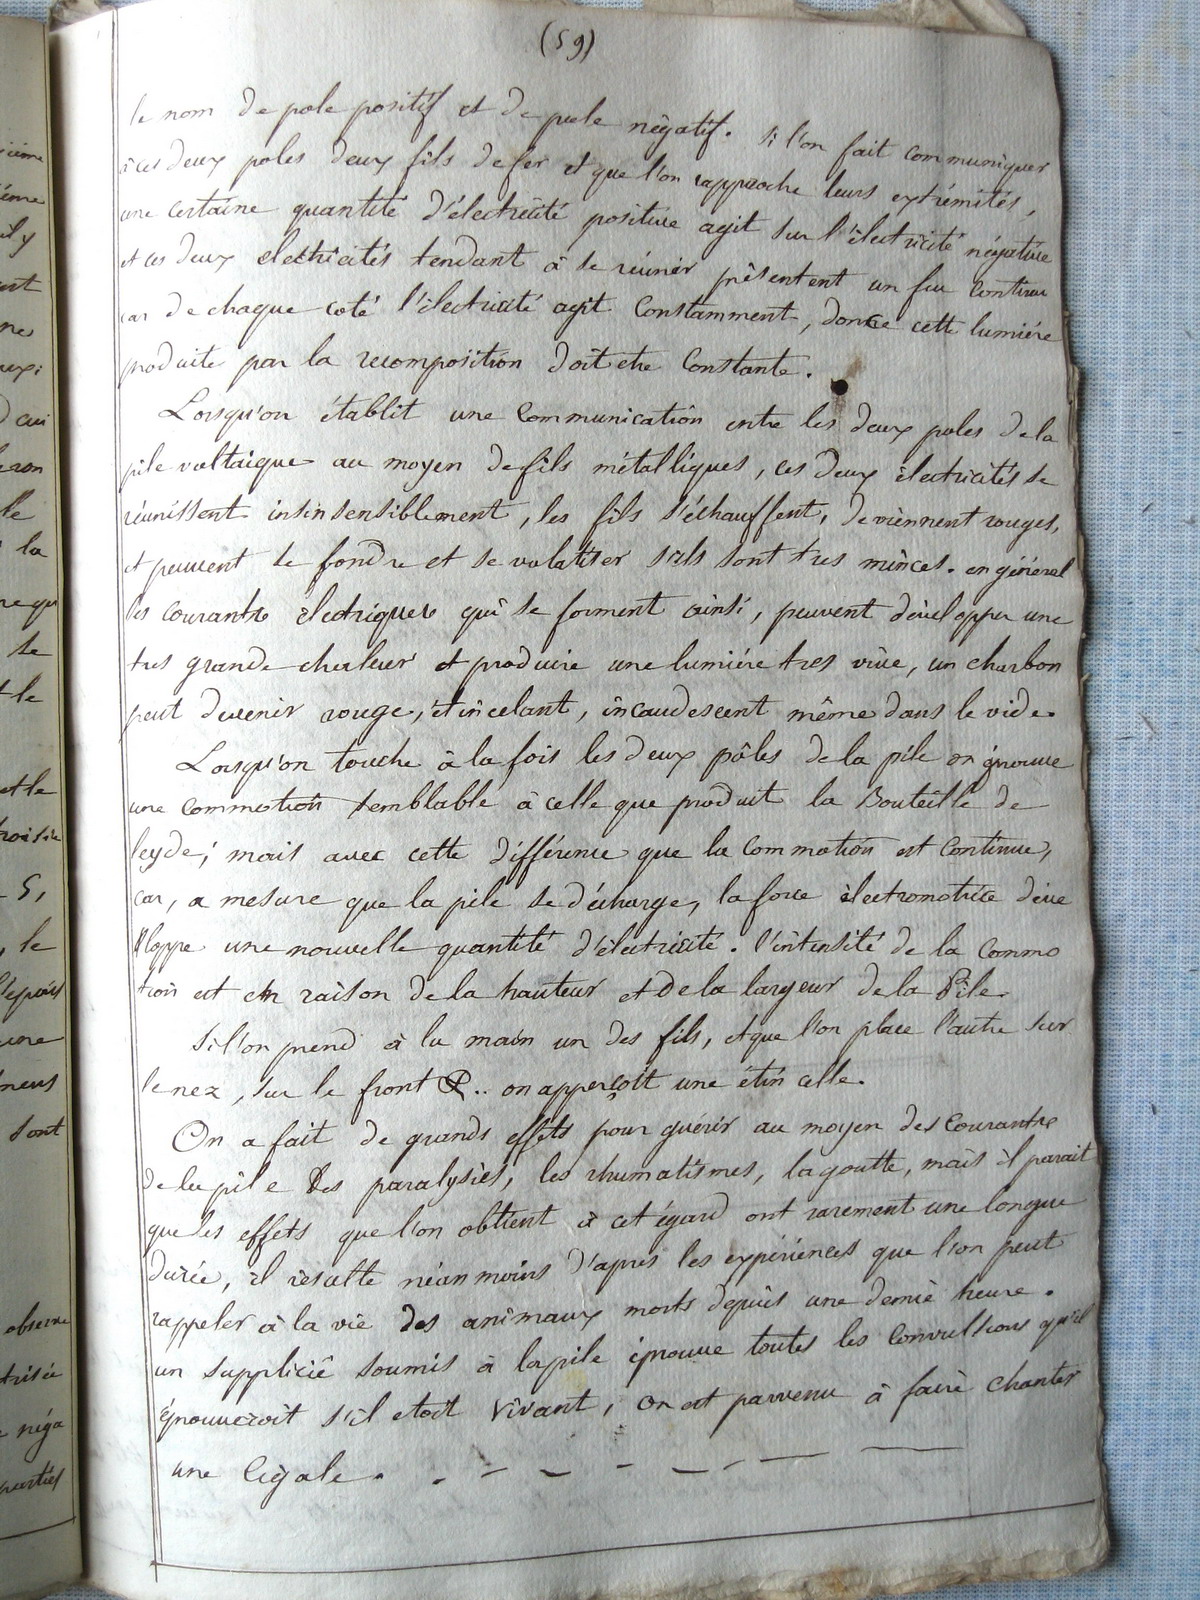 (59)
le nom de pole positif et de pole négatif. Si l'on fait communiquer
à ces deux poles deux fils de fer et que l'on rapproche leurs extrémités,
une certaine quantité d'électricité positive agit sur l'électricité négative
et ces deux electricités tendant à se réunir présentent un feu continu
car de chaque coté l'électricité agit constamment, donce cette lumière
produite par la recomposition doit etre constante.
Lorsqu'on établit une communication entre les deux poles de la
pile voltaique au moyen de fils métalliques, ces deux électricités se
réunissent insinsensiblement, les fils s'échauffent, deviennent rouges,
et peuvent se fondre et se volatiser s'ils sont tres minces. en général
les courants électriques qui se forment ainsi, peuvent développer une
tres grande chaleur et produire une lumière tres vive, un charbon
peut devenir rouge, étincelant, incandescent même dans le vide.
Lorsqu'on touche à la fois les deux pôles de la pile on éprouve
une commotion semblable à celle que produit la Bouteille de
leyde; mais avec cette différence que la commotion est continue,
car, a mesure que la pile se décharge, la force électromotrice déve
lloppe une nouvelle quantité d'électricité. l'intensité de la commo
tion est en raison de la hauteur et de la largeur de la Pile.
Si l'on prend à la main un des fils, et que l'on place l'autre sur
le nez, sur le front &.. on apperçoit une étincelle.
On a fait de grands effets pour guérir au moyen des courants
de la pile les paralysies, les rhumatismes, la goutte, mais il parait
que les effets que l'on obtient à cet égard ont rarement une longue
durée, il résulte néanmoins d'après les expériences que l'on peut
rappeler à la vie des animaux morts depuis une demie heure.
un supplicié soumis à la pile éprouve toutes les convulsions qu'il
éprouveroit s'il etoit vivant, on est parvenu à faire chanter
une Cigale.